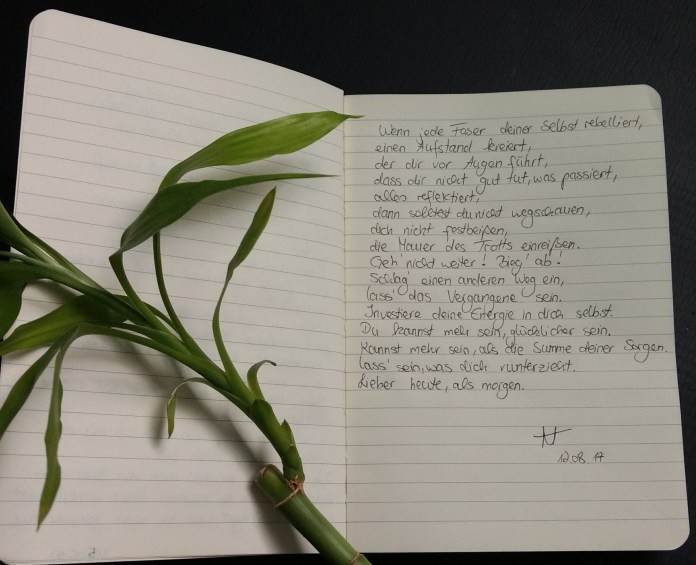 Wenn jede Faser deiner Selbst rebelliert,
einen Aufstand kreiert,
der dir vor Augen führt,
dass dir nicht gut tut, was passiert,
alles reflektiert,
dann solltest du nicht wegschauen,
dich nicht festbeißen,
die Mauer des Trotts einreißen.
Geh' nicht weiter! Bieg' ab!
Schlag' einen anderen Weg ein,
lass' das Vergangene sein.
Investiere deine Energie in dich selbst.
Du kannst mehr sein, glücklicher sein.
Kannst mehr sein, als die Summe deiner Sorgen.
Lass' sein, was dich runterzieht.
Lieber heute, als morgen.
12.08.17